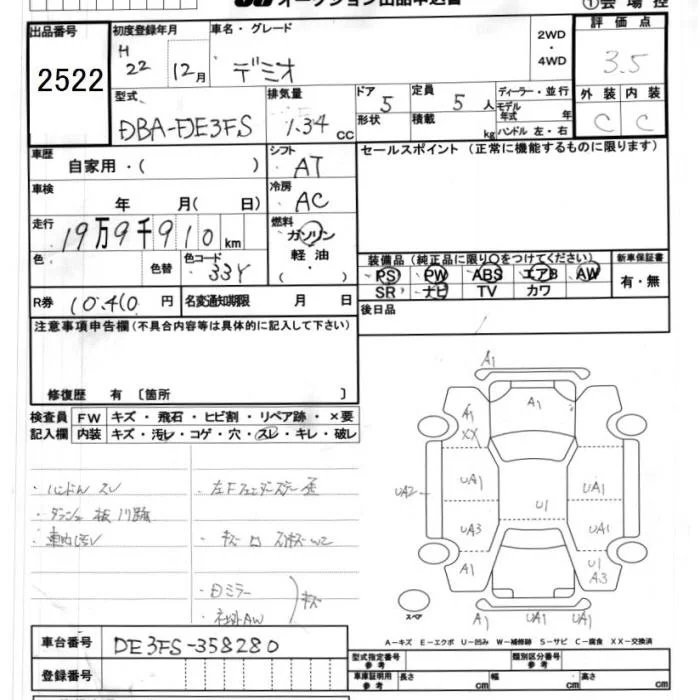 オークション出品申込書
①会場控
出品番号
2522
初度登録年月
H 22 12月
車名・グレード
デミオ
2WD・4WD
評価点
3.5
外装 内装
C C
型式
DBA-DE3FS
排気量
1.34 CC
ドア 5
定員 5 人
形状
積載 kg
ディーラー・並行
モデル年式 年
ハンドル 左・右
車歴
自家用・( )
シフト
AT
セールスポイント(正常に機能するものに限ります)
車検
年 月( 日)
冷房
AC
走行
19万9千910 km
燃料
ガソリン
軽油
・( )
色
色替
色コード
33Y
装備品(純正品に限り○をつけてください)
PS PW ABS エアB AW
SR ナビ TV カワ
新車保証書
有・無
R券 10.410 円
名変通知期限 月 日
後日品
注意事項申告欄(不具合内容等は具体的に記入して下さい)
修復歴 有〔箇所 〕
検査員記入欄
FW キズ・飛石・ヒビ割・リペア跡・×要
内装 キズ・汚レ・コゲ・穴・スレ・キレ・破レ
・ハンドルスレ
・車内汚レ
・左Fフェンダーステー歪
・キズ
・日ミラー
・社外AW
キズ
A1
A1
A1
XX
UA1
UA1
UA2
U1
UA3
UA1
A1
U1
A3
スペア
A1 UA1 UA1
A-キズ E-エクボ U-凹み W-補修跡 S-サビ C-腐食 XX-交換済
車台番号
DE3FS-358280
登録番号
型式指定番号 参考
類別区分番号 参考
車庫証明用 参考
長さ cm 幅 cm 高さ cm